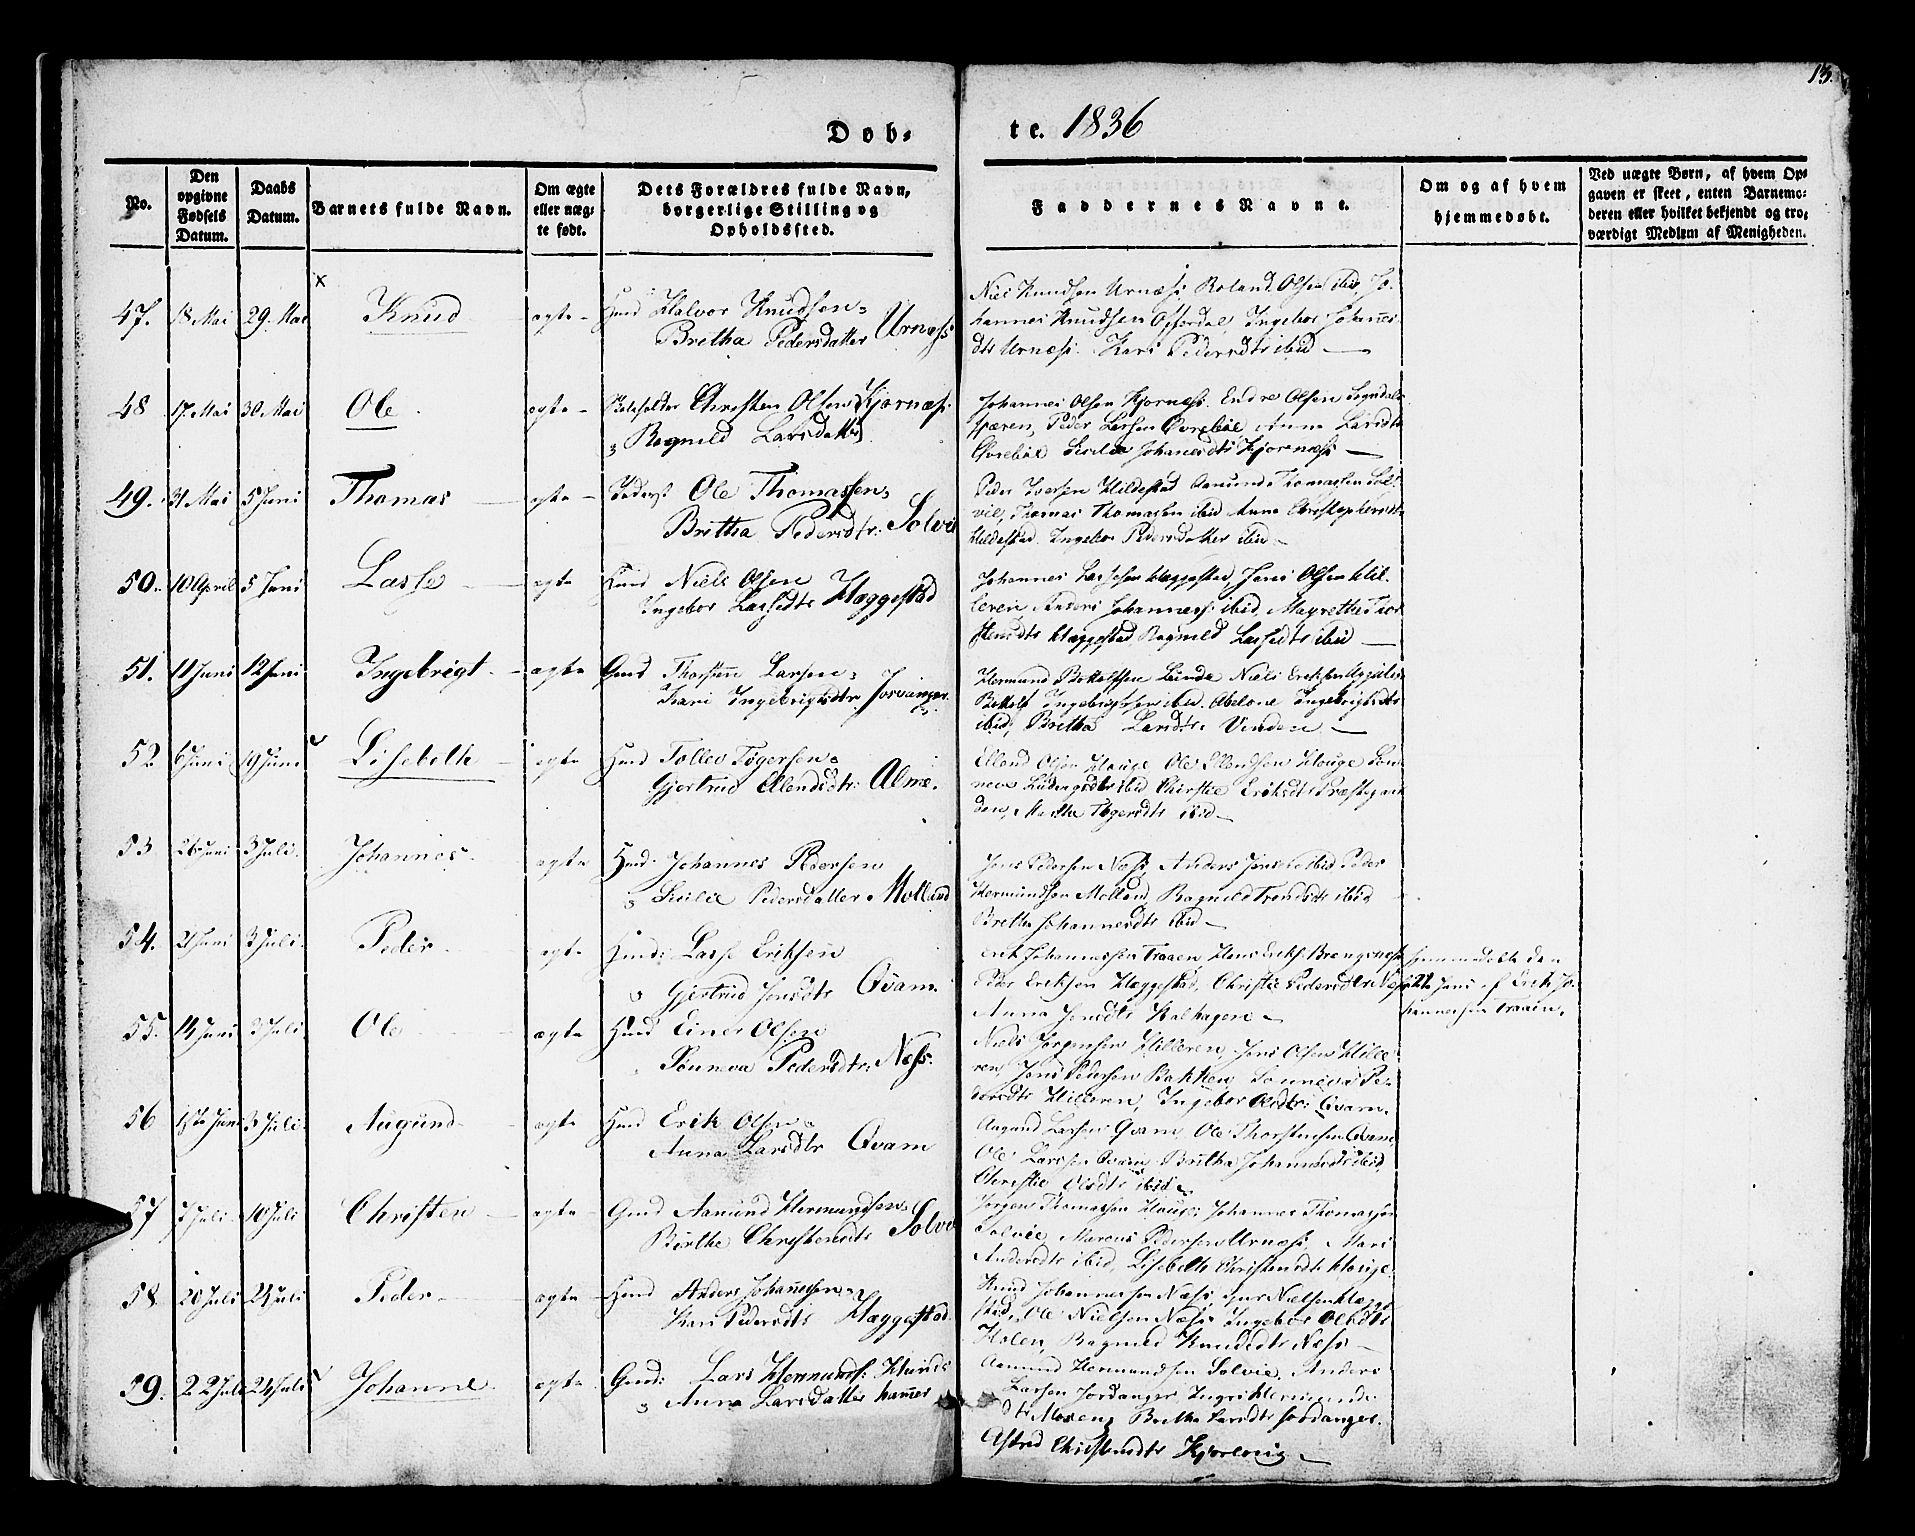 13.
Døb- te. 1836
No.
Den opgivne Fødsels Datum.
Daabs Datum.
Barnets fulde Navn.
Om ægte eller uæg- te født.
Dets Forældres fulde Navn, borgerlige Stilling og Opholdssted.
Faddernes Navne.
Om og af hvem hjemmedøbt.
Ved uægte Børn, af hvem Op-
gaven er skeet, enten Barnemo-
deren eller hvilket bekjendt og tro-
værdigt Medlem af Menigheden.
47. 18 Mai 29. Mai Knud ægte Halvor Knudsen
Britha Pedersdatter Urnæss
Niel Knudsen Urnæss, Roland Olsen ibid, Jo-
hannes Knudsen Ingebor Johannes-
dtr Urnæss. Kari Pedersdtr ibid
48 17. Mai 30. Mai Ole ægte Christen Olsen Kjørnæs
Ragnild Larsdatter
Johannes Olsen Kjørnæss. Endre Olsen
Peder Larsen Øvrebøe Anna Larsdtr
Øvrebøe Johannesdtr Kjørnæss
49. 31 Mai 5 Juni Thomas ægte Ole Thomassen
Britha Pedersdtr: Solvi
Peder Iversen Hildestad Aamund Thomassen Sol-
vie, Thomas Thomassen ibid Anna Christophersdtr
Hildestad. Ingebor Pedersdatter ibid
50. 10 April 5 Juni Lasse ægte Niels Olsen
Ingebor Lassedtr Hæggestad
Johannes Lassesen Hæggestad, Jens Olsen Hil-
leren Anders Johanness: ibid, Magrethe Tor-
stensdtr Hæggestad Ragnild Lassedtr ibid
51. 11 Juni 12 Juni Ingebrigt ægte Gmd Thorsten Larsen
Kari Ingebrigtsdtr. Jorvanger
Hermund Botolfsen Lunde Niels Eriksen
Botolf Ingebrigtsen ibid. Abelone Ingebrigtsdtr
ibid, Britha Larsdtr Venden
52 6 Juni 19 Juni Lisebeth ægte Hmd Tollev Tøgersen
Gjertrud Ellendsdtr: Alme.
Ellend Olsen Houge Ole Ellendsen Houge
ibid Christie Eriksdtr Præstegaar-
den, Martha Tøgersdtr ibid
53 26 Juni 3 Juli. Johannes ægte Hmd. Johannes Pedersen
Pedersdatter Molland
Jens Pedersen Næss, Anders Jensen ibid Peder
Hermundsen Molland, Ragnild Trondsdtr ibid
Britha Johannesdtr ibid
54. 21 Juni 3 Juli. Peder ægte Hmd: Lasse Eriksen
Gjertrud Jensdtr Qvam
Erik Johannessen Traaen Hans Eriks:
Peder Eriksen Hæggestad, Christie Pedersdtr Næss
Anna Jensdtr Kalhagen
hjemmedøbt den
22 Juni af Erik Jo-
hannessen Traaen.
55. 14 Juni 3 Juli Ole ægte Hmd Einer Olsen
Sünneva Pedersdtr: Næss.
Niels Jørgensen Hilleren, Jens Olsen Hille-
ren, Jens Pedersen Bakken Sønneva Pe-
dersdtr Hilleren, Ingebor Olsdtr: Qvam
56 1ste Juni 3 Juli Augund ægte Hmd Erik Olsen
Anna Larsdtr Qvam
Augund Larsen Qvam, Ole Thorstensen Qvam
Ole Larsen Qvam Britha Johannesdtr ibid
Christie Olsdtr ibid
57 7 Juli 10 Juli Christen ægte Gmd Aamund Hermundsen
Birthe Christensdtr Solvi
Jørgen Thomassen Houge, Johannes Thomassen
Solvie, Marcus Pedersen Urnæss, Mari
Andersdtr ibid, Lisebeth Christensdtr Houge.
58 20 Juli 24 Juli Peder ægte Hmd Anders Johannesen
Kari Pedersdtr Hæggestad
Knud Johannessen Næss, Nielsen Hægge-
stad, Ole Nielsen Næss Ingebor Olsdtr
Holen, Ragnild Knudsdtr Næss
59. 22 Juli 24 Juli Johanne ægte Gmd: Lars Hermunds: Hunds-
Anna Larsdatter hamer
Aamund Hermundsen Solvie, Anders
Larsen Jordanger Ingri Hermunds-
dtr Moxen, Britha Larsdtr Jordanger.
Astrid Christensdtr Kjørlovig